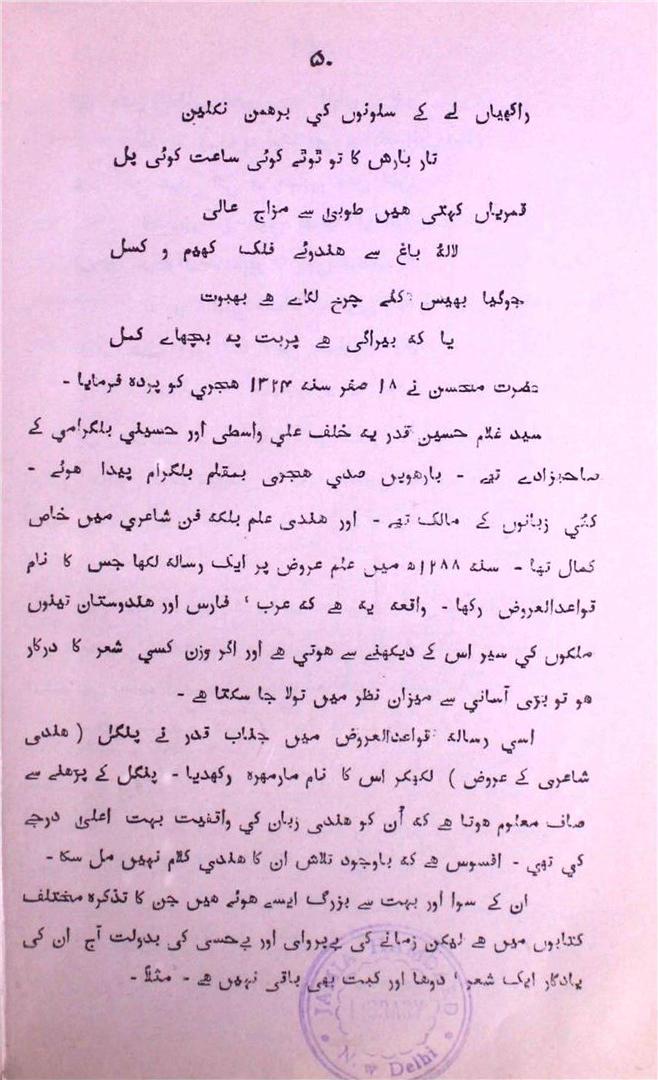 ۵۰
راکھیاں لے کے سلونوں کي برھمن نکلیں
تار بارش کا تو ٹوٹے کوئی ساعت کوئی پل
قمریاں کہتی ھیں طوبیٰ سے مزاج عالی
لالۂ باغ سے ھندوئے فلک کھیم و کسل
جوگیا بھیس کئے چرخ لگاے ھے بھبوت
یا کہ بیراگی ھے پربت پہ بچھاے کمل
حضرت محسن نے ۱۸ صفر سنہ ۱۳۲۳ ھجري کو پردہ فرمایا -
سید غلام حسین قدر یہ خلف علي واسطی اور حسیني بلگرامي کے
صاحبزادے تھے - بارھویں صدي ھجری بمقام بلگرام پیدا ھوئے -
کئي زبانوں کے مالک تھے - اور ھندی علم بلکہ فن شاعري میں خاص
کمال تھا - سنہ ۱۲۸۸ھ میں علم عروض پر ایک رسالہ لکھا جس کا نام
قواعدالعروض رکھا - واقعہ یہ ھے کہ عرب ' فارس اور ھندوستان تینوں
ملکوں کي سیر اس کے دیکھنے سے ھوتي ھے اور اگر وزن کسي شعر کا درکار
ھو تو بڑی آساني سے میزان نظر میں تولا جا سکتا ھے -
اسي رسالہ قواعدالعروض میں جناب قدر نے پنگل ( ھندی
شاعری کے عروض ) لکھکر اس کا نام مارمھرہ رکھدیا - پنگل کے پڑھنے سے
صاف معلوم ھوتا ھے کہ اُن کو ھندی زبان کي واقفیت بہت اعلیٰ درجے
کي تھي - افسوس ھے کہ باوجود تلاش ان کا ھندي کلام نہیں مل سکا -
ان کے سوا اور بہت سے بزرگ ایسے ھوئے ھیں جن کا تذکرہ مختلف
کتابوں میں ھے لیکن زمانے کی بےپروای اور بےحسی کی بدولت آج ان کی
یادگار ایک شعر ' دوھا اور کبت بھی باقی نہیں ھے - مثلاً -
Delhi